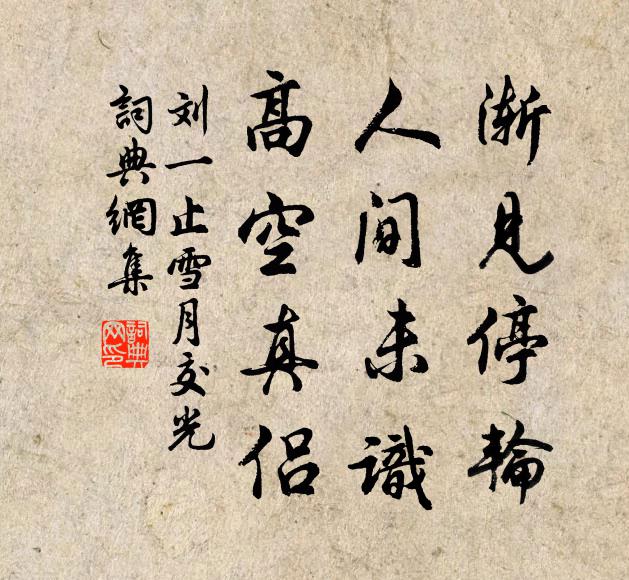 渐見停輪
人间未識
高空真侣
刘一止雪月交光
詞典網集
詞典
网印